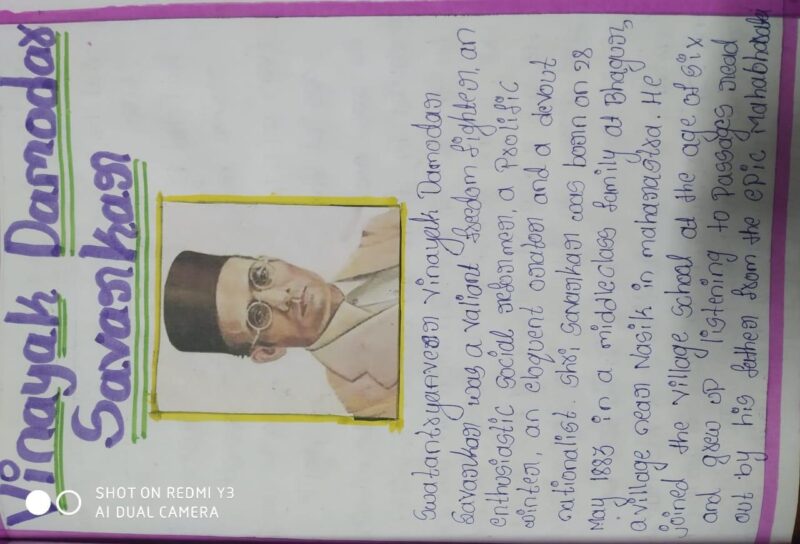 Vinayak Damodar
Savarkar
Swatantryaveer Vinayak Damodar
Savarkar was a valiant freedom fighter, an
enthusiastic social reformer, a prolific
writer, an eloquent orator and a devout
nationalist. Shri Savarkar was born on 28
May 1883 in a middleclass family at Bhagur,
a village near Nasik in maharastra. He
joined the village school at the age of six
and grew up listening to passages read
out by his father from the epic Mahabharata
SHOT ON REDMI Y3
AI DUAL CAMERA